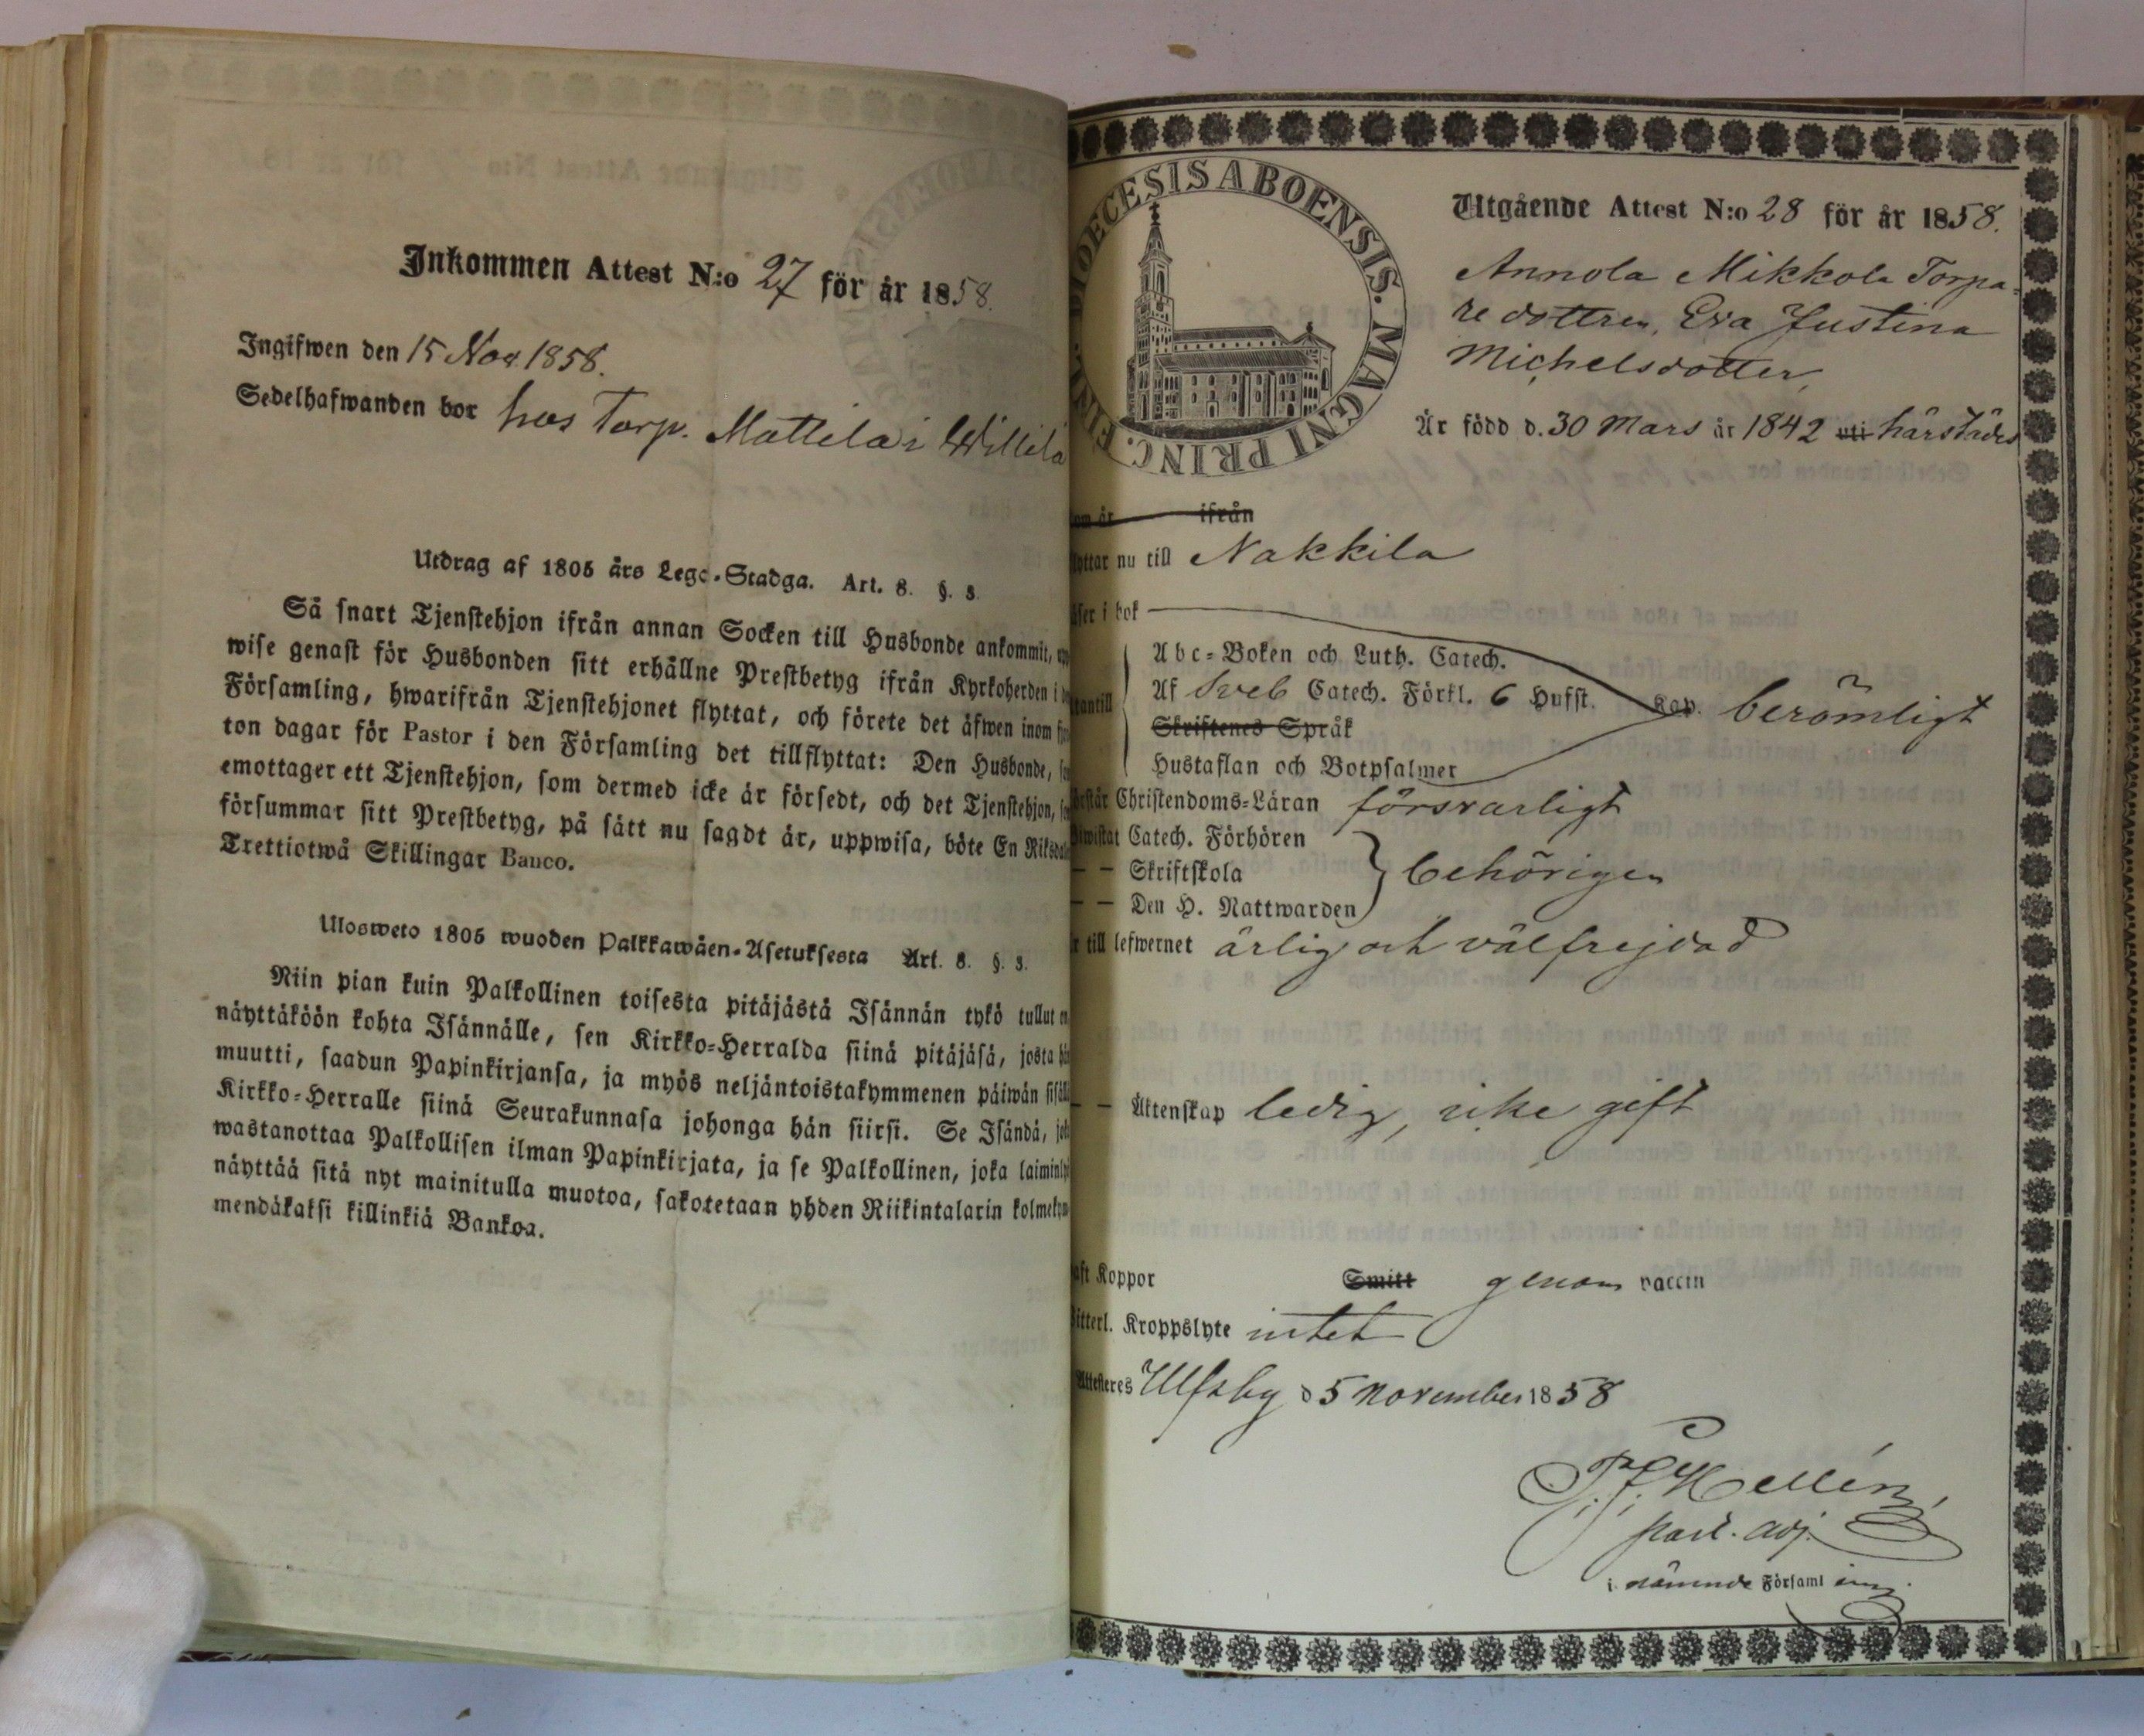 Inkommen Attest N:o 27 för år 1858.
Ingifwen den 15 Nov. 1858.
Sedelhafwanden bor hos Torp. Mattila i Willila
Utdrag af 1805 års Lego-Stadga. Art. 8. §. 3.
Så snart Tjenstehjon ifrån annan Socken till Husbonde ankommit,
wise genast för Husbonden sitt erhållne Prestbetyg ifrån Kyrkoherden i
Församling, hwarifrån Tjenstehjonet flyttat, och förete det äfwen inom
ton dagar för Pastor i den Församling det tillflyttat: Den Husbonde,
emottager ett Tjenstehjon, som dermed icke är försedt, och det Tjenstehjon,
försummar sitt Prestbetyg, på sätt nu sagdt är, uppwisa, böte En Riksdaler
Trettiotwå Skillingar Banco.
Ulosweto 1805 wuoden Palkkawäen-Asetuksesta Art. 8. §. 3.
Niin pian kuin Palkollinen toisesta pitäjästä Isännän tykö tullut on
näyttäköön kohta Isännälle, sen Kirkko-Herralda siinä pitäjäsä, josta hän
muutti, saadun Papinkirjansa, ja myös neljäntoistakymmenen päiwän sisällä
Kirkko-Herralle siinä Seurakunnasa johonga hän siirsi. Se Isändä, joka
wastanottaa Palkollisen ilman Papinkirjata, ja se Palkollinen, joka laiminlyö
näyttää sitä nyt mainitulla muotoa, sakotetaan yhden Riikintalarin kolmekym
mendäkaksi killinkiä Bankoa.
DIOECESIS ABOENSIS. MAGNI PRINC. FINL.
Utgående Attest N:o 28 för år 1858.
Annola Mikkola Torpa=
re dottren, Eva Justina
Michelsdotter,
Är född d. 30 Mars år 1842 uti härstädes
om år ifrån
lyttar nu till Nakkila
äser i bok
Abc-Boken och Luth. Catech.
utantill Af Sveb Catech. Förkl. 6 Hufst. Kap. berömligt
Skriftenes Språk
Hustaflan och Botpsalmer
örstår Christendoms-Läran försvarligt
Biwistat Catech. Förhören
— — Skriftskola behörigen
— — Den H. Nattwarden
r till lefwernet ärlig och välfrejdad
— — Äktenskap ledig, icke gift
aft Koppor Smitt genom vaccin
itterl. Kroppslyte intet
Attesteres Ulfsby d 5 November 1858
Hellén,
past. adj.
i nämnde Församling.